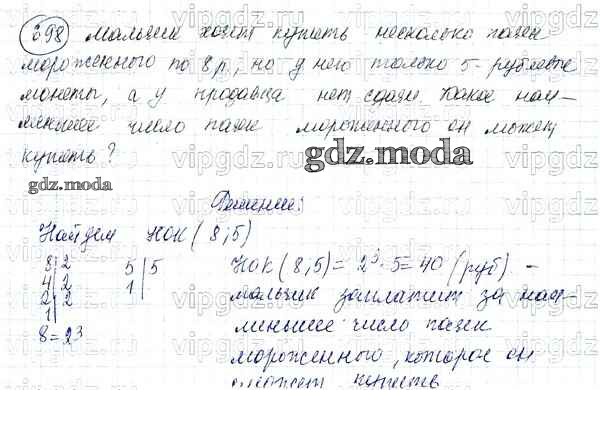 298 Мальчик хочет купить несколько пачек
мороженного по 8 р, но у него только 5-рублёвые
монеты, а у продавца нет сдачи. Какое наи-
меньшее число пачек мороженного он может
купить?
gdz.moda
gdz.moda
Решение:
Найдем НОК (8;5)
8|2 5|5
4|2 1|
2|2
1|
8=2³
НОК (8,5) = 2³·5=40 (руб) -
мальчик заплатит за наи-
меньшее число пачек
мороженного, которое он
сможет купить